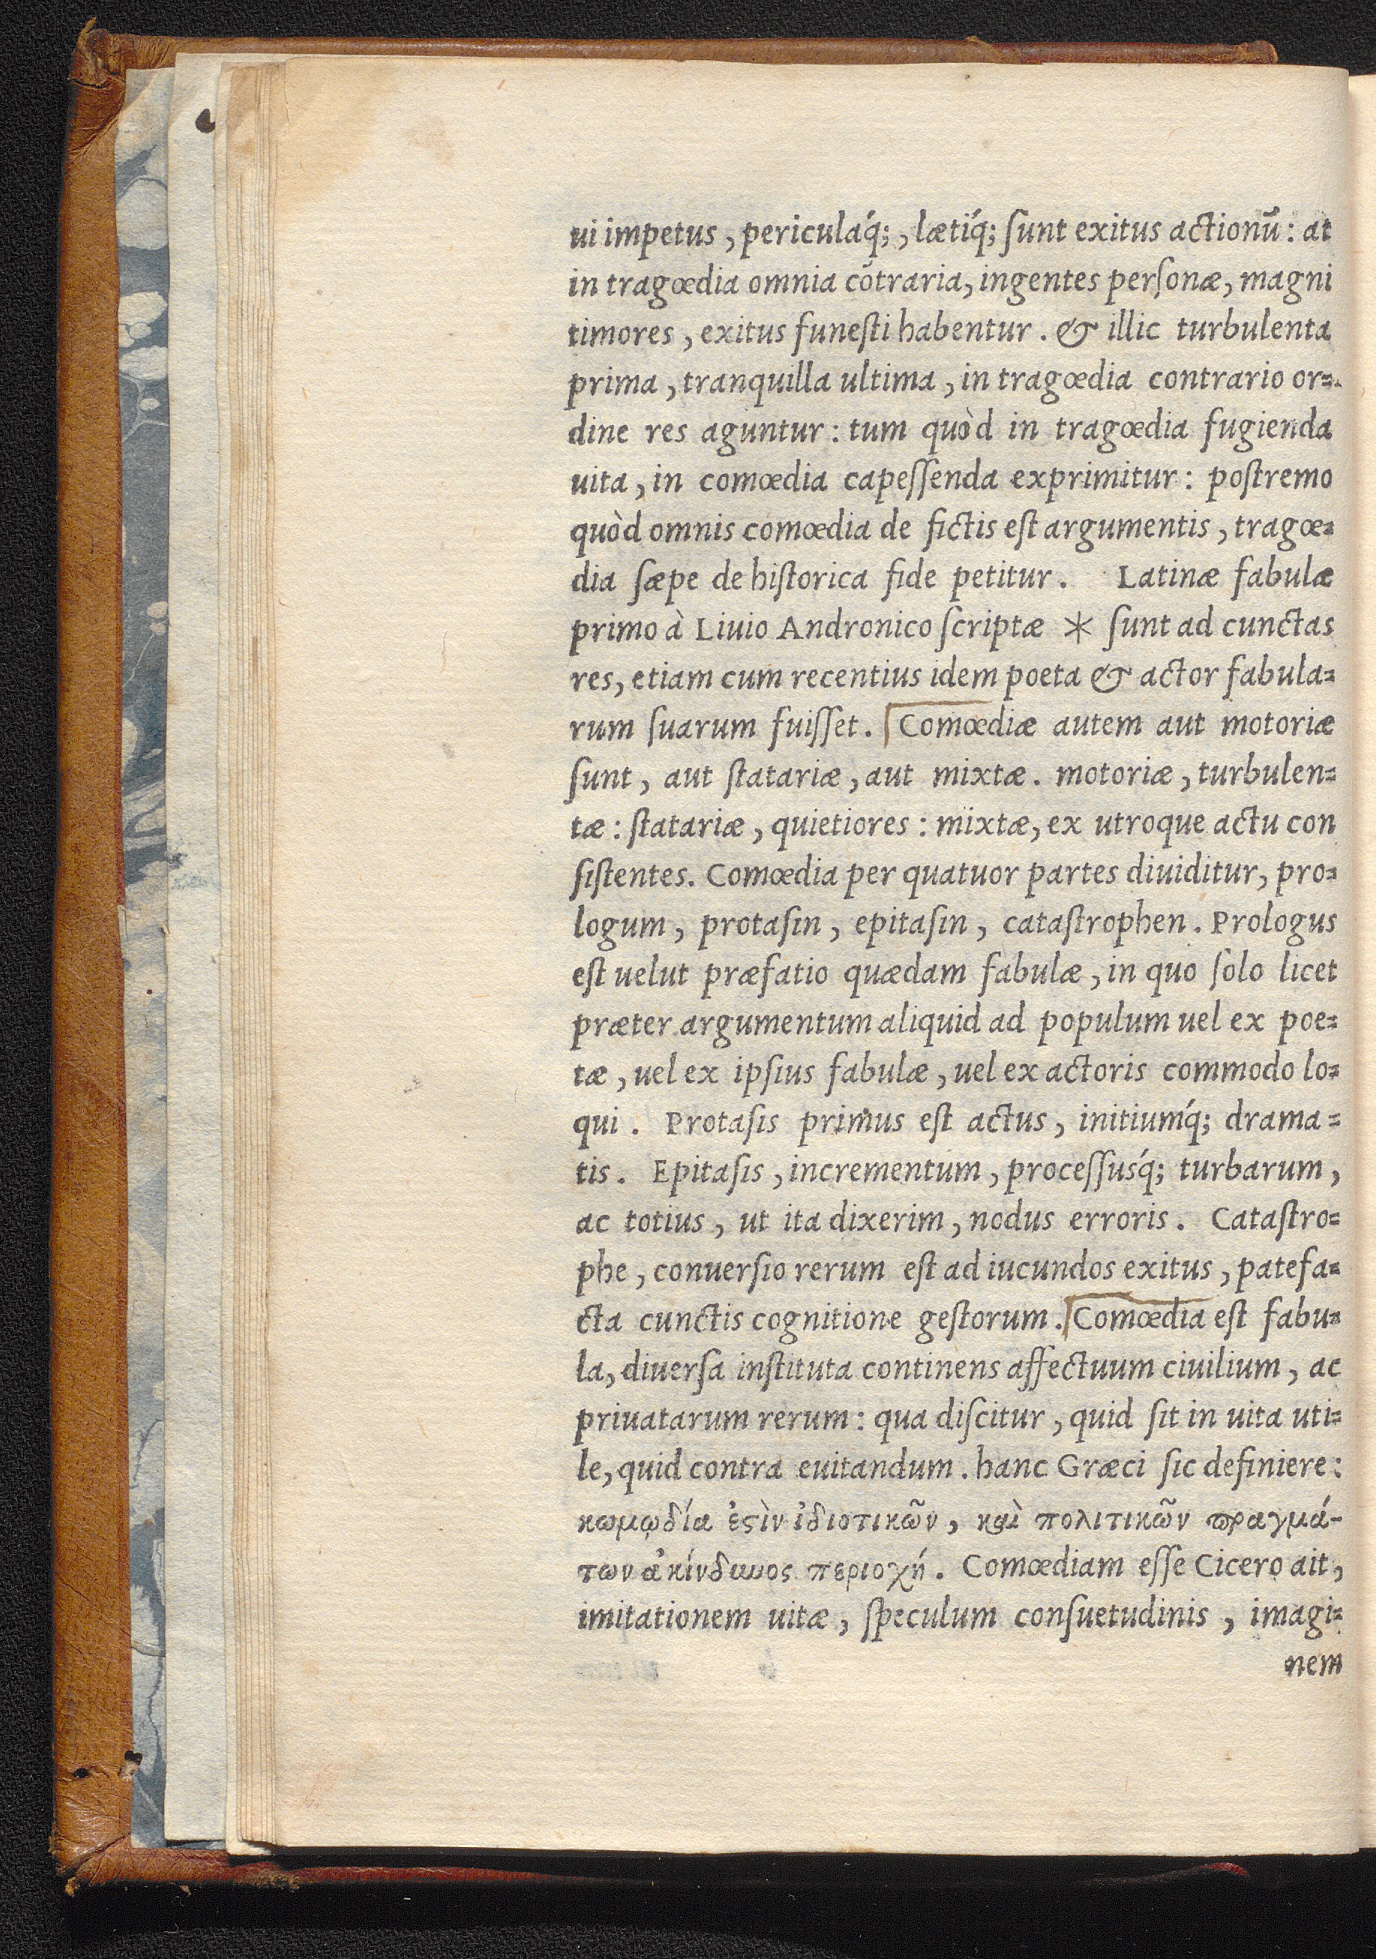 ui impetus, periculaq́;, lætiq́; ſunt exitus actionũ: at
in tragœdia omnia cõtraria, ingentes perſonæ, magni
timores, exitus funeſti habentur. & illic turbulenta
prima, tranquilla ultima, in tragœdia contrario or=
dine res aguntur: tum quòd in tragœdia fugienda
uita, in comœdia capeſſenda exprimitur: poſtremo
quòd omnis comœdia de fictis eſt argumentis, tragœ=
dia ſæpe de hiſtorica fide petitur. Latinæ fabulæ
primo à Liuio Andronico ſcriptæ * ſunt ad cunctas
res, etiam cum recentius idem poeta & actor fabula=
rum ſuarum fuiſſet. Comœdiæ autem aut motoriæ
ſunt, aut ſtatariæ, aut mixtæ. motoriæ, turbulen=
tæ: ſtatariæ, quietiores: mixtæ, ex utroque actu con
ſiſtentes. Comœdia per quatuor partes diuiditur, pro=
logum, protaſin, epitaſin, cataſtrophen. Prologus
eſt uelut præfatio quædam fabulæ, in quo ſolo licet
præter argumentum aliquid ad populum uel ex poe=
tæ, uel ex ipſius fabulæ, uel ex actoris commodo lo=
qui. Protaſis primus eſt actus, initiumq́; drama=
tis. Epitaſis, incrementum, proceſſusq́; turbarum,
ac totius, ut ita dixerim, nodus erroris. Cataſtro=
phe, conuerſio rerum eſt ad iucundos exitus, patefa=
cta cunctis cognitione geſtorum. Comœdia eſt fabu=
la, diuerſa inſtituta continens affectuum ciuilium, ac
priuatarum rerum: qua diſcitur, quid ſit in uita uti=
le, quid contra euitandum. hanc Græci ſic definiere:
κωμῳδία ἐϛὶν ἰδιοτικῶν, καὶ πολιτικῶν πραγμά-
των ἀκίνδυνος περιοχή. Comœdiam eſſe Cicero ait,
imitationem uitæ, ſpeculum conſuetudinis, imagi=
nem